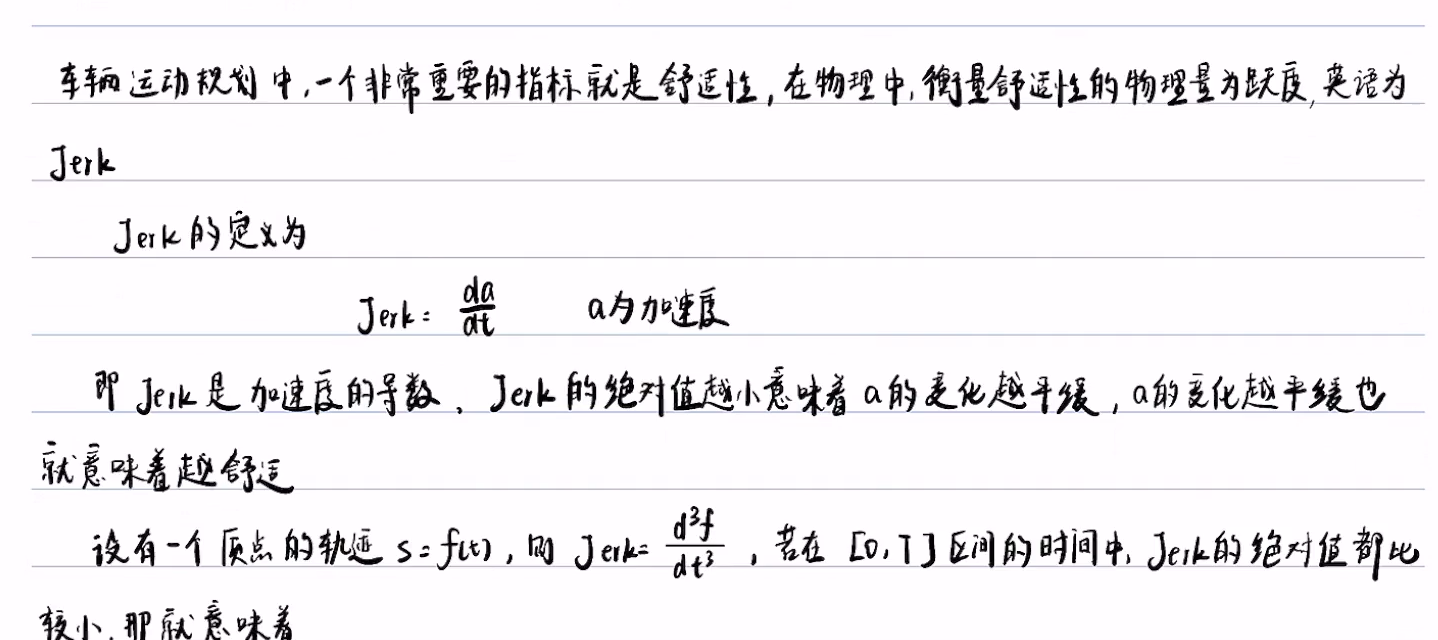 车辆运动规划中,一个非常重要的指标就是舒适性,在物理中,衡量舒适性的物理量为跃度,英语为
Jerk
Jerk的定义为
Jerk= da/dt  a为加速度
即 Jerk是加速度的导数、Jerk的绝对值越小意味着a的变化越平缓,a的变化越平缓也
就意味着越舒适
设有一个质点的轨迹 s=f(t),则 Jerk= d³f/dt³,若在[0,T]区间的时间中,Jerk的绝对值都比
较小,那就意味着